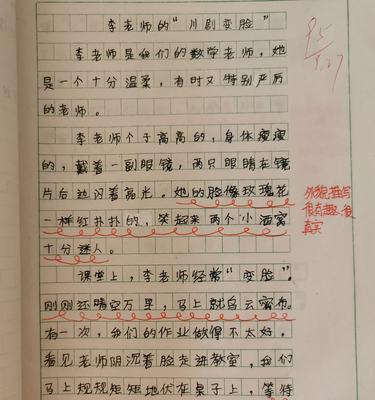 李老师的“川剧变脸”
李老师是我们的数学老师，她
是一个十分温柔，有时又特别严厉
的老师。
李老师个子高高的，身体瘦瘦
的，戴着一副眼镜，两只眼睛在镜
片后边闪着亮光。她的脸像玫瑰花
一样红扑扑的，笑起来两个小酒窝
十分迷人。
课堂上，李老师经常“变脸”，
刚刚还晴空万里，马上就乌云密布。
有一次，我们的作业做得不太好，
看见老师阴沉着脸走进教室，我们
马上规规矩矩地伏在桌子上，等待
95
9.27
外貌描写
很有趣、很
真实